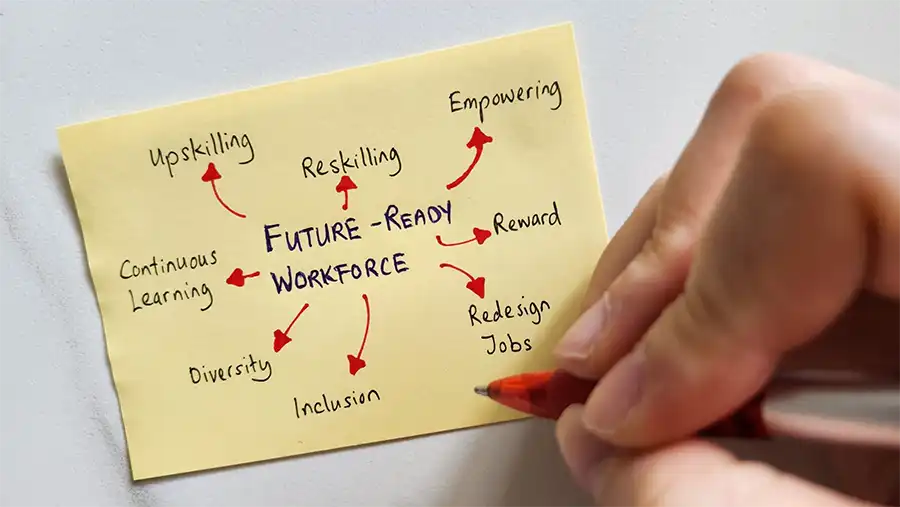 Upskilling
Reskilling
Empowering
FUTURE-READY
WORKFORCE
Reward
Continuous
Learning
Redesign
Jobs
Diversity
Inclusion